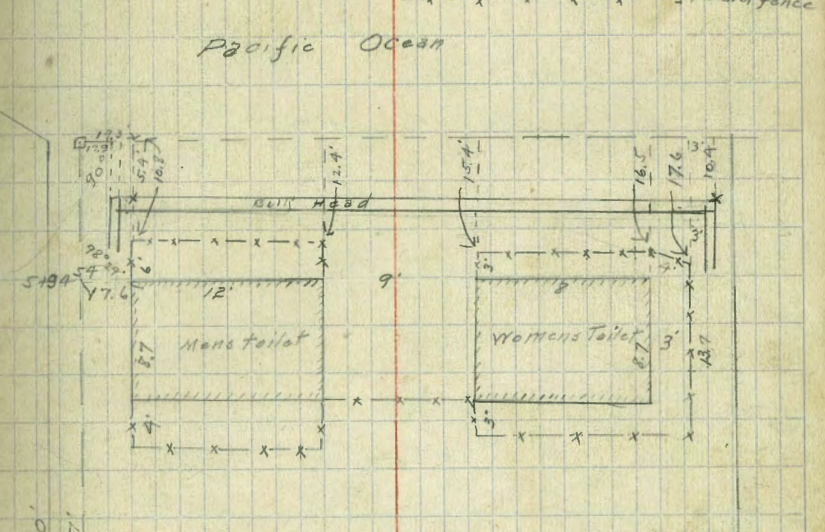 fence
Pacific Ocean
12.9
90°
5.4'
10.8'
12.4'
15.4'
16.5
17.6
3'
10.4
Bulk Head
3'
78°
5+94
54
17.6
6'
12'
9'
3'
8
4'
Mens toilet
8.7
Womens Toilet
8.7
3'
13.7
4'
3'